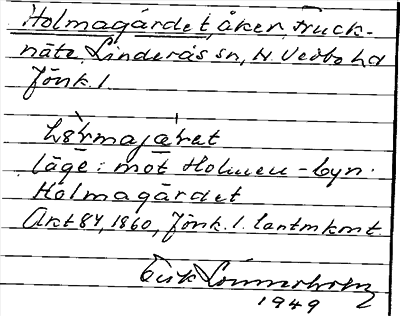 Holmagärdet, åker, Fruck-
näta, Linderås sn, N. Vedbo hd
Jönk. l.
läge: mot Holmen-byn.
Holmagärdet
Akt 84, 1860, Jönk. l. lantm kont.
Erik Lönnerholm
1949